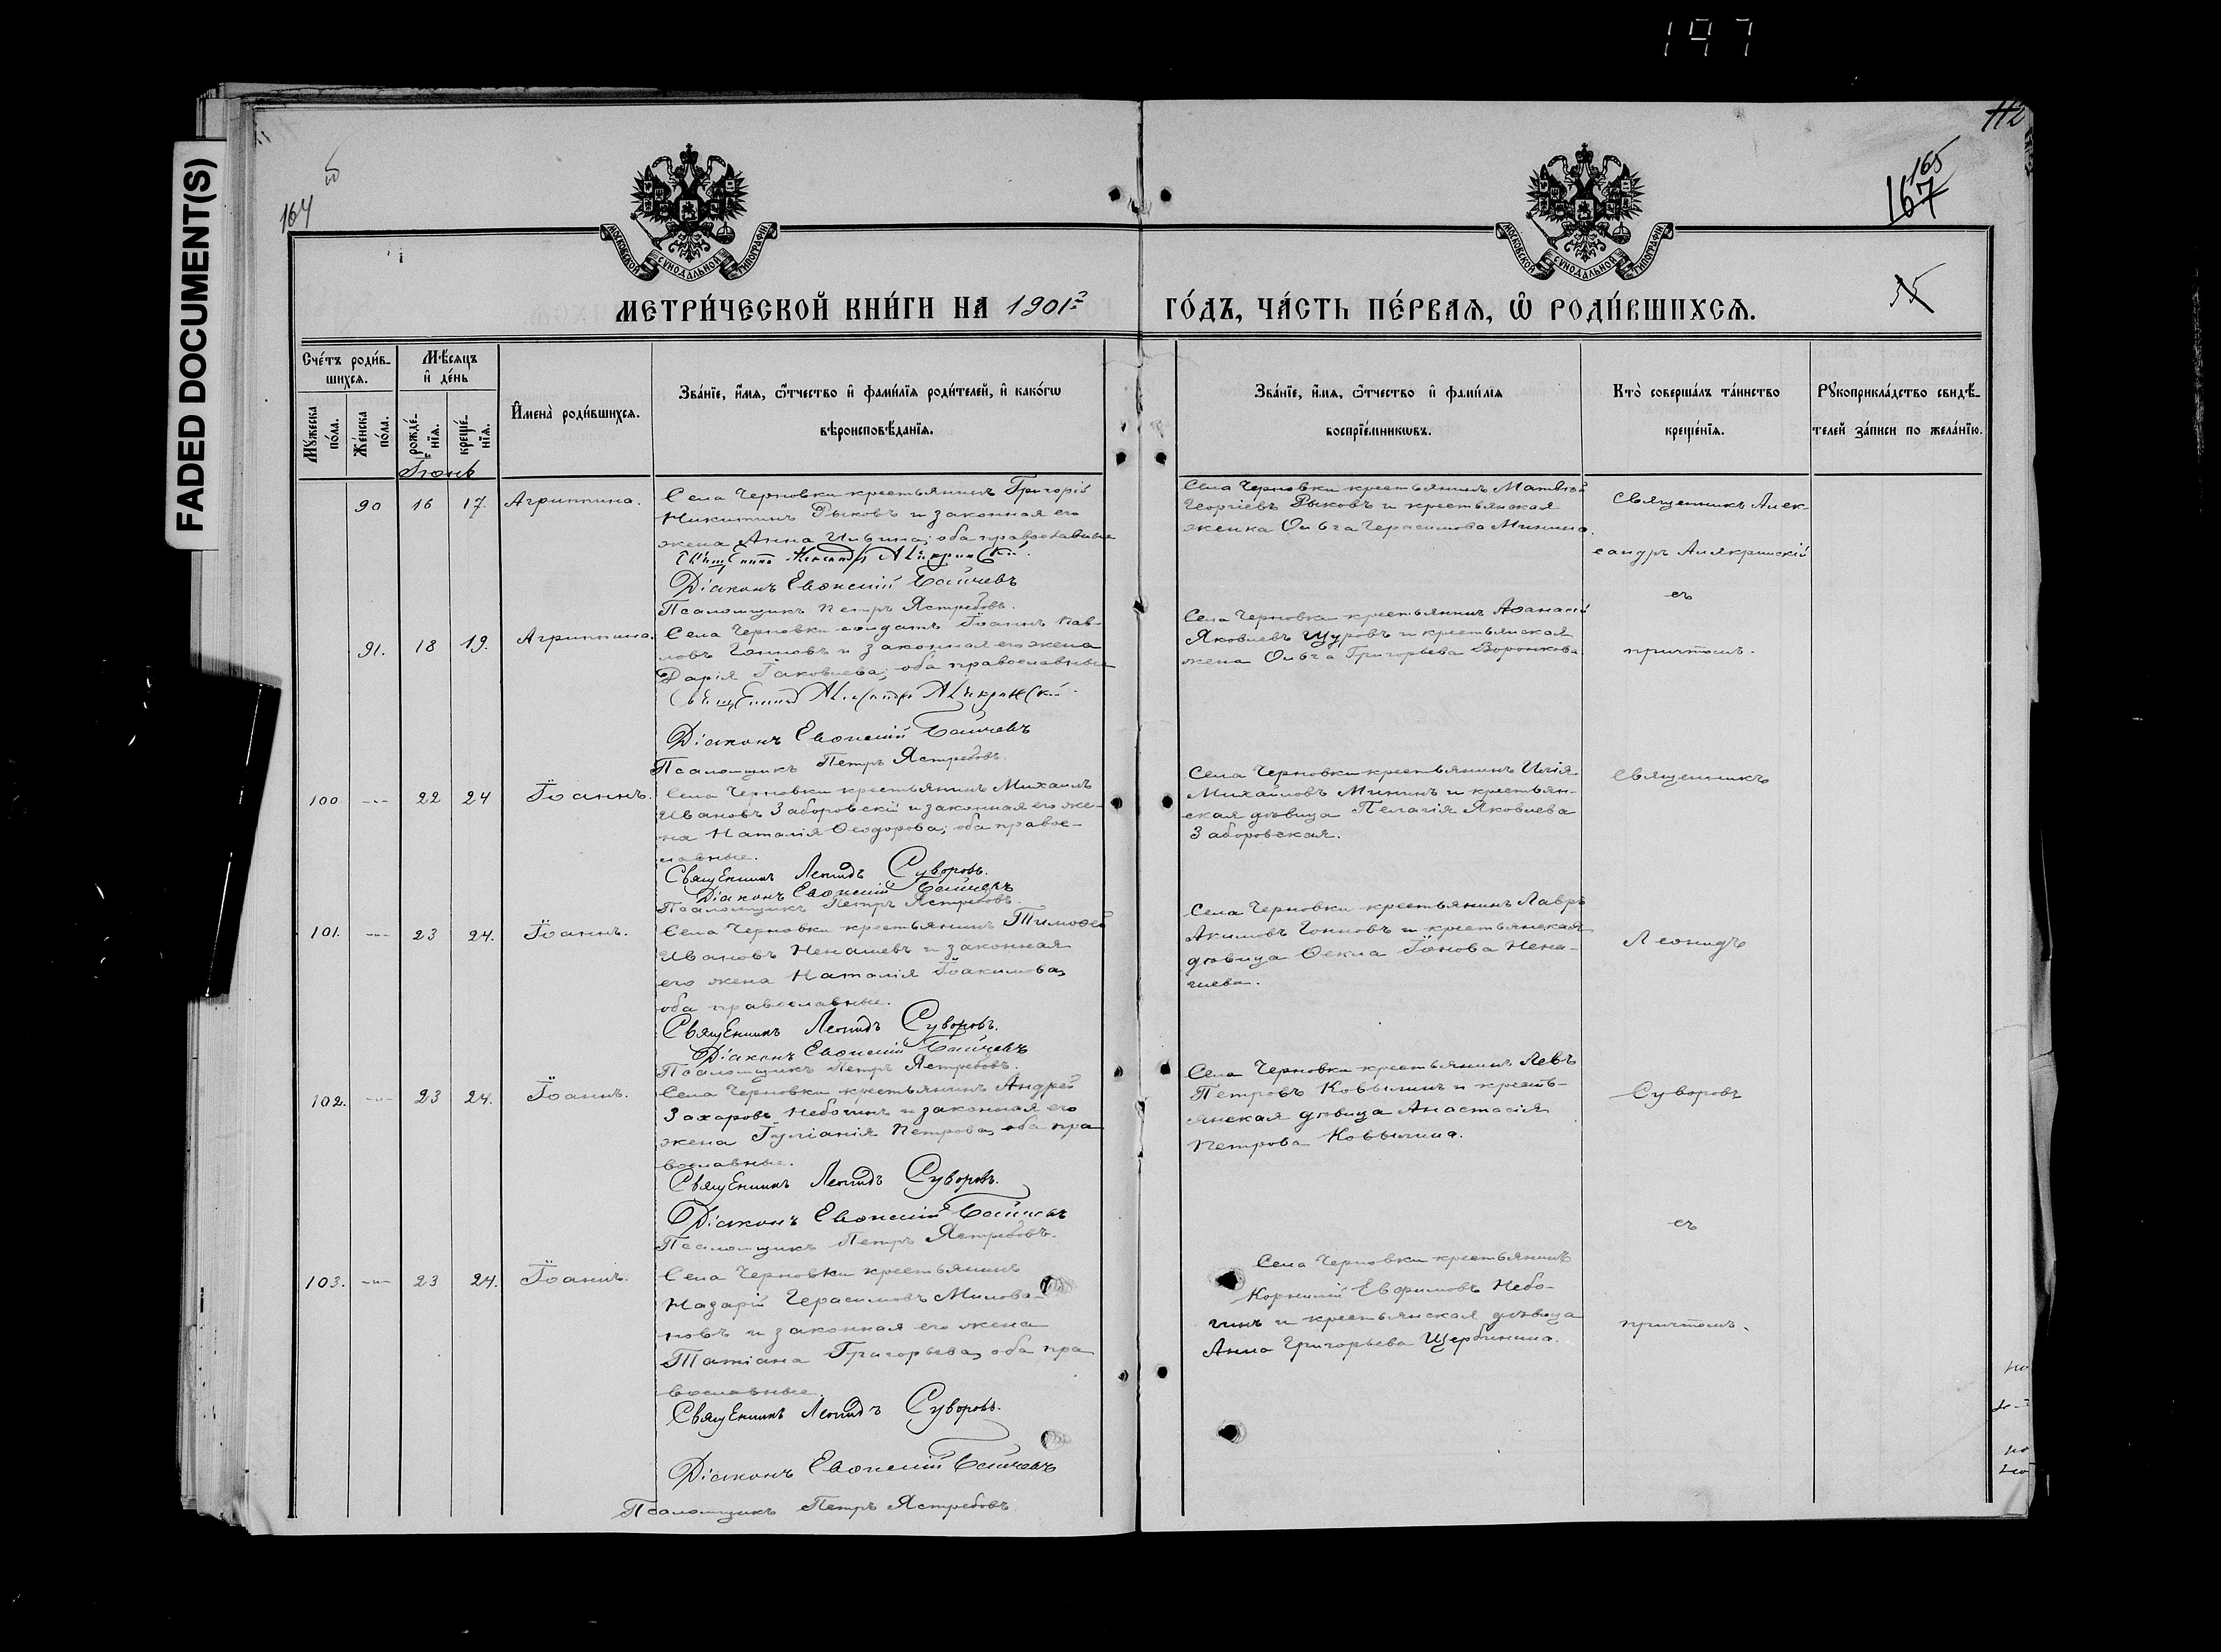 197
FADED DOCUMENT(S)
112
164
165
167
35
МОСКОВСКОЙ СѴНОДАЛЬНОЙ ТИПОГРАФІИ
МОСКОВСКОЙ СѴНОДАЛЬНОЙ ТИПОГРАФІИ
МЕТРИ́ЧЕСКОЙ КНИ́ГИ НА 1901 г.
ГО́ДЪ, ЧА́СТЬ ПЕ́РВАЯ, Ѡ҆ РОДИ́ВШИХСЯ.
Сче́тъ роди́в-
шихся.
Мѣ́сяцъ
и҆ де́нь
Мꙋ́жеска
по́ла.
Же́нска
по́ла.
рожде́-
нїя.
креще́-
нїя.
И҆мена̀ роди́вшихся.
Зва́нїе, и҆́мя, ѻ҆́тчество и҆ фами́лїя роди́телей, и҆ како́гѡ
вѣроисповѣ́данїя.
Зва́нїе, и҆́мя, ѻ҆́тчество и҆ фами́лїя
воспрїе́мникѡвъ.
Кто̀ соверша́лъ та́инство
креще́нїя.
Рꙋкоприкла́дство свидѣ́-
телей за́писи по жела́нїю.
Іюнь
90 16 17. Агриппина.
Села Черновки крестьянинъ Григорій
Никитинъ Рыковъ и законная его
жена Анна Ильина; оба православные
Священникъ Александръ Алякринскій.
Діаконъ Евѳимій Байчевъ
Псаломщикъ Петръ Ястребовъ.
Села Черновки крестьянинъ Матвѣй
Георгіевъ Рыковъ и крестьянская
женка Ольга Герасимова Минина.
Священникъ Алек-
сандръ Алякринскій
съ
причтомъ.
91. 18 19. Агриппина.
Села Черновки солдатъ Іоаннъ Пав-
ловъ Гонновъ и законная его жена
Дарія Іаковлева; оба православные
Священникъ Александръ Алякринскій.
Діаконъ Евѳимій Байчевъ
Псаломщикъ Петръ Ястребовъ.
Села Черновки крестьянинъ Аѳанасій
Яковлевъ Щуровъ и крестьянская
жена Ольга Григорьева Воронкова
100 --- 22 24 Іоаннъ.
Села Черновки крестьянинъ Михаилъ
Ивановъ Заборовскій и законная его же-
на Наталія Ѳеодорова; оба правос-
лавные.
Священникъ Леонидъ Суворовъ.
Діаконъ Евѳимій Байчевъ
Псаломщикъ Петръ Ястребовъ.
Села Черновки крестьянинъ Илія
Михайловъ Мининъ и крестьян-
ская дѣвица Пелагія Яковлева
Заборовская.
Священникъ
Леонидъ
Суворовъ
съ
причтомъ.
101. --- 23 24. Іоаннъ.
Села Черновки крестьянинъ Тимоѳей
Ивановъ Ненашевъ и законная
его жена Наталія Іоакимова,
оба православные.
Священникъ Леонидъ Суворовъ.
Діаконъ Евѳимій Байчевъ
Псаломщикъ Петръ Ястребовъ.
Села Черновки крестьянинъ Лавръ
Акимовъ Гонновъ и крестьянская
дѣвица Ѳекла Іонова Нена-
шева.
102. --- 23 24. Іоаннъ.
Села Черновки крестьянинъ Андрей
Захаровъ Небогинъ и законная его
жена Іуліанія Петрова, оба пра
вославные.
Священникъ Леонидъ Суворовъ.
Діаконъ Евѳимій Байчевъ
Псаломщикъ Петръ Ястребовъ.
Села Черновки крестьянинъ Левъ
Петровъ Ковылинъ и кресть-
янская дѣвица Анастасія
Петрова Ковылина.
103. --- 23 24. Іоаннъ.
Села Черновки крестьянинъ
Назарій Герасимовъ Милова-
новъ и законная его жена
Татіана Григорьева, оба пра
вославные.
Священникъ Леонидъ Суворовъ.
Діаконъ Евѳимій Байчевъ
Псаломщикъ Петръ Ястребовъ.
Села Черновки крестьянинъ
Корнилій Евѳимовъ Небо-
гинъ и крестьянская дѣвица
Анна Григорьева Щербинина.